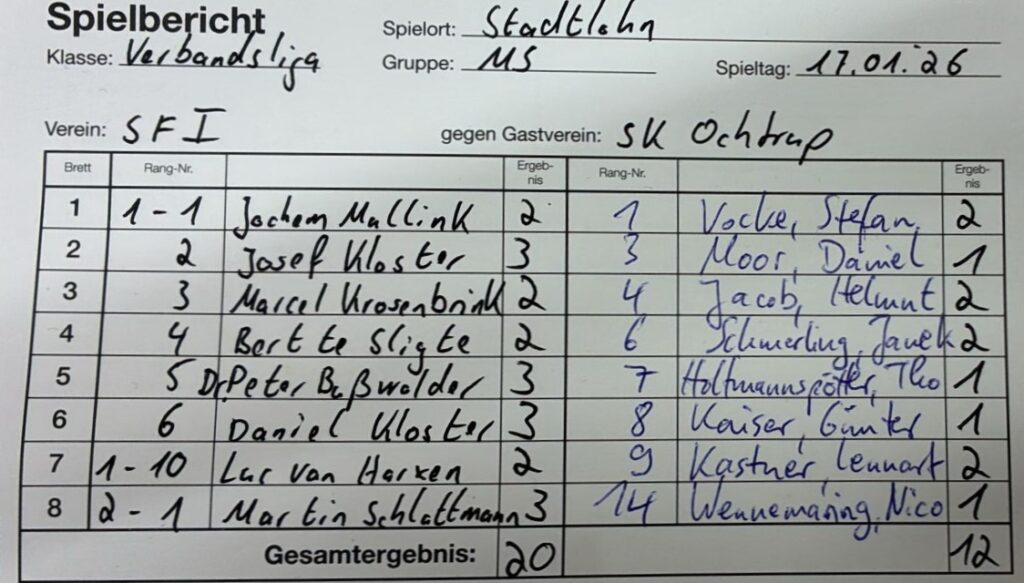 Spielbericht Spielort: Stadtlohn
Klasse: Verbandsliga Gruppe: MS Spieltag: 17.01.26
Verein: SF I gegen Gastverein: SK Ochtrup
Brett Rang-Nr. Ergeb-nis Rang-Nr. Ergeb-nis
1 1-1 Jochem Mallink 2 1 Vocke, Stefan 2
2 2 Josef Kloster 3 3 Moor, Daniel 1
3 3 Marcel Krosenbrink 2 4 Jacob, Helmut 2
4 4 Bert te Sligte 2 6 Schmerling, Janek 2
5 5 Dr. Peter Bußwolder 3 7 Holtmannspötter, Theo 1
6 6 Daniel Kloster 3 8 Kaiser, Günter 1
7 1-10 Luc van Harxen 2 9 Kastner, Lennart 2
8 2-1 Martin Schlattmann 3 14 Wennemaring, Nico 1
Gesamtergebnis: 20 12